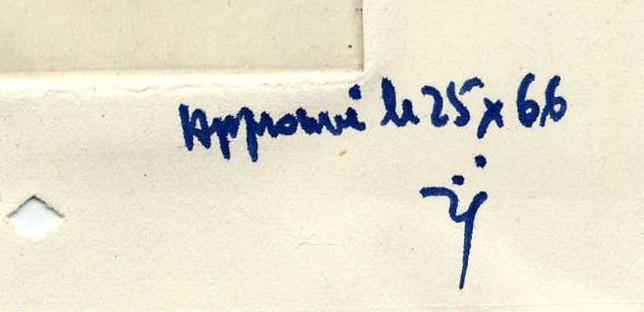 Approuvé le 25 X 66